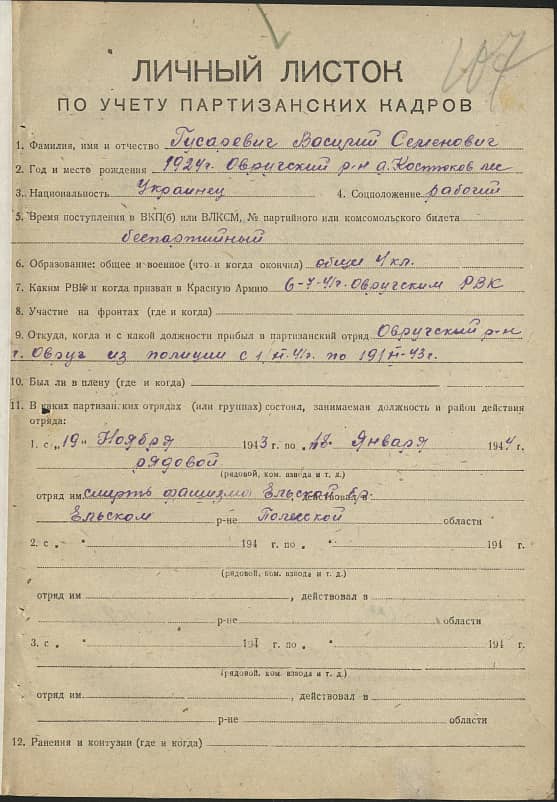 107
ЛИЧНЫЙ ЛИСТОК
ПО УЧЕТУ ПАРТИЗАНСКИХ КАДРОВ
1. Фамилия, имя и отчество Гусаревич Василий Семенович
2. Год и место рождения 1924г. Овручский р-н д. Костюков лес
3. Национальность Украинец 4. Соцположение рабочий
5. Время поступления в ВКП(б) или ВЛКСМ, № партийного или комсомольского билета
беспартийный
6. Образование: общее и военное (что и когда окончил) общее 4 кл.
7. Каким РВК и когда призван в Красную Армию 6-7-41г. Овручским РВК
8. Участие на фронтах (где и когда)
9. Откуда, когда и с какой должности прибыл в партизанский отряд Овручский р-н
г. Овруч из полиции с 1/ -41г. по 19/ -43г.
10. Был ли в плену (где и когда)
11. В каких партизанских отрядах (или группах) состоял, занимаемая должность и район действия
отряда:
1. с „19“ Ноября 1943 г. по „18“ Января 1944 г.
рядовой
(рядовой, ком. взвода и т. д.)
отряд им. смерть фашизму Ельской бр. действовал в
Ельском р-не Полесской области
2. с „ “ 194 г. по „ “ 194 г.
(рядовой, ком. взвода и т. д.)
отряд им. , действовал в
р-не области
3. с „ “ 194 г. по „ “ 194 г.
(рядовой, ком. взвода и т. д.)
отряд им. , действовал в
р-не области
12. Ранения и контузии (где и когда)